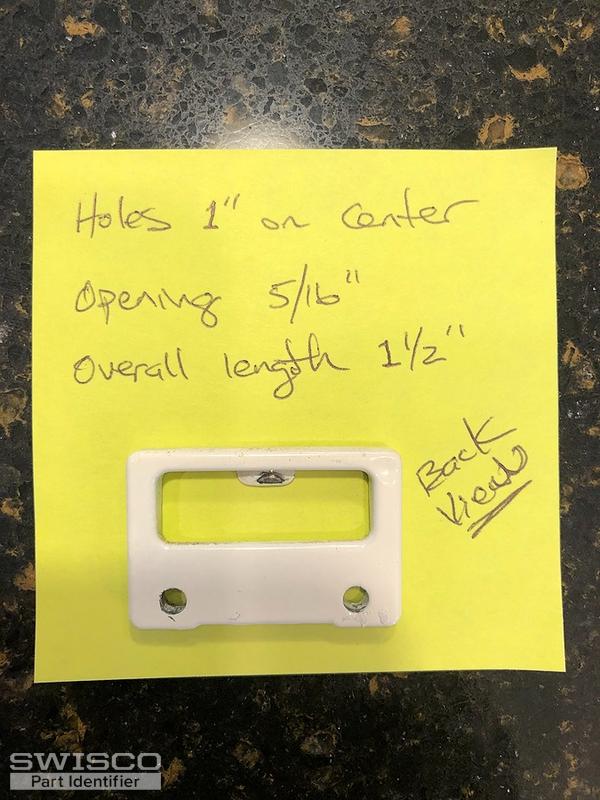 Holes 1" on center
Opening 5/16"
Overall length 1 1/2"
Back
View
SWISCO
Part Identifier